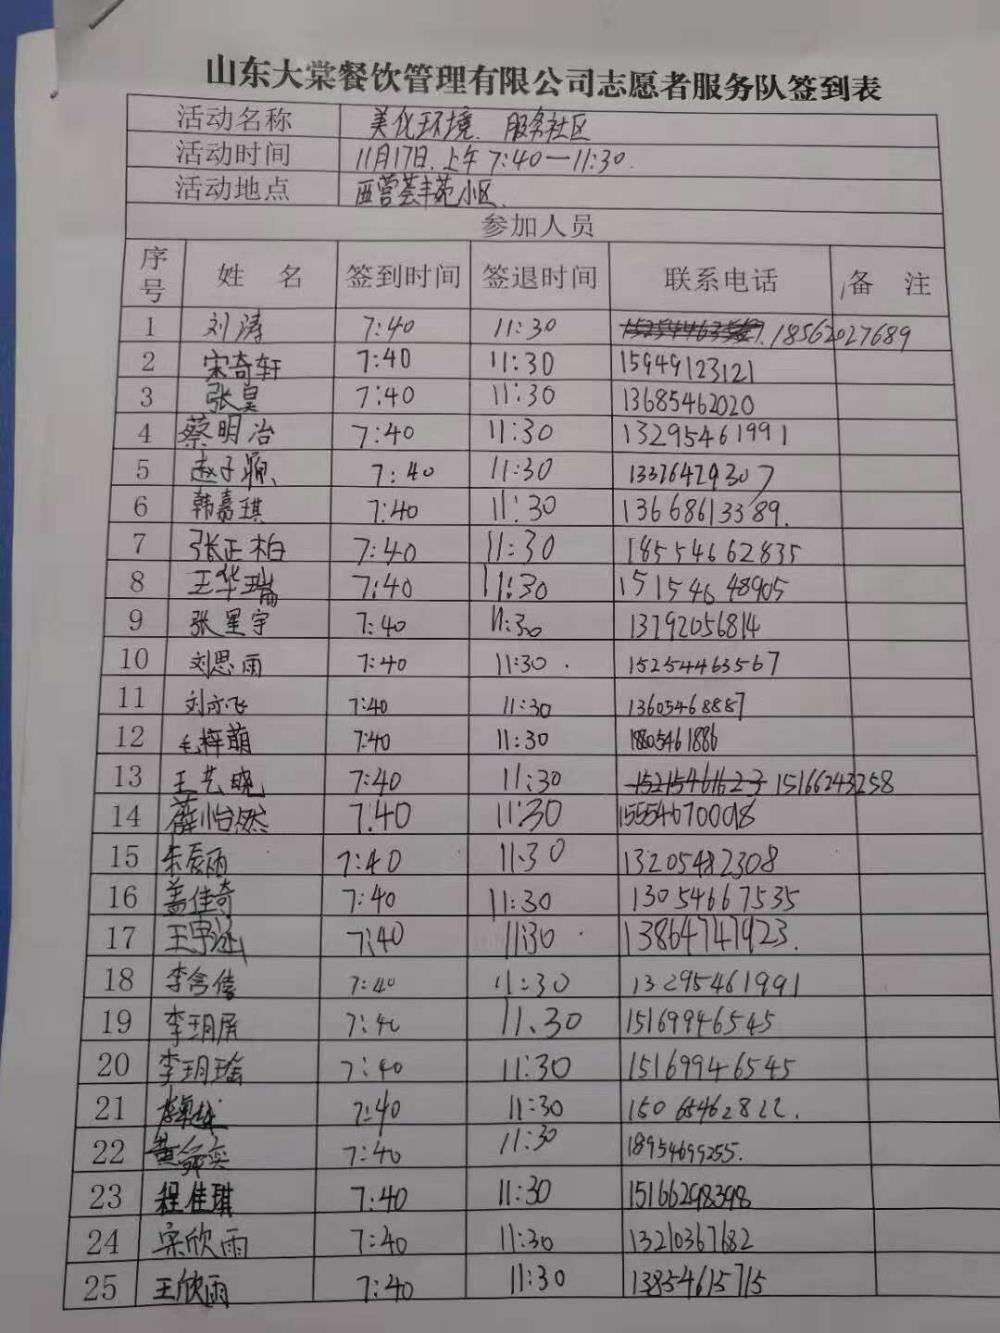 山东大棠餐饮管理有限公司志愿者服务队签到表
活动名称 美化环境、服务社区
活动时间 11月17日.上午7:40—11:30.
活动地点 西营荟丰苑小区.
参加人员
序号 姓 名 签到时间 签退时间 联系电话 备 注
1 刘涛 7:40 11:30 18562027689
2 宋奇轩 7:40 11:30 15949123121
3 张昊 7:40 11:30 13685462020
4 蔡明冶 7:40 11:30 13295461991
5 赵子 7:40 11:30 13376429307
6 韩嘉琪 7:40 11:30 13668613389.
7 张正柏 7:40 11:30 18554662835
8 王华瑞 7:40 11:30 15154648905
9 张星宇 7:40 11:30 13792056814
10 刘思雨 7:40 11:30 15254463567
11 刘亦飞 7:40 11:30 13605468887
12 毛梓萌 7:40 11:30 18805461886
13 王艺晓 7:40 11:30 15215461623 15166243258
14 薛怡然 7:40 11:30
15 朱爱雨 7:40 11:30 13205482308
16 盖佳奇 7:40 11:30 13054667535
17 王宇涵 7:40 11:30 13864747923.
18 李含倩 7:40 11:30 13295461991
19 李玥屏 7:40 11.30 15169946545
20 李玥瑶 7:40 11:30 15169946545
21 7:40 11:30 15065462822.
22 黄 奕 7:40 11:30 18954699255.
23 程佳琪 7:40 11:30 15166298398
24 宋欣雨 7:40 11:30 13210367682
25 王欣雨 7:40 11:30 13854615715